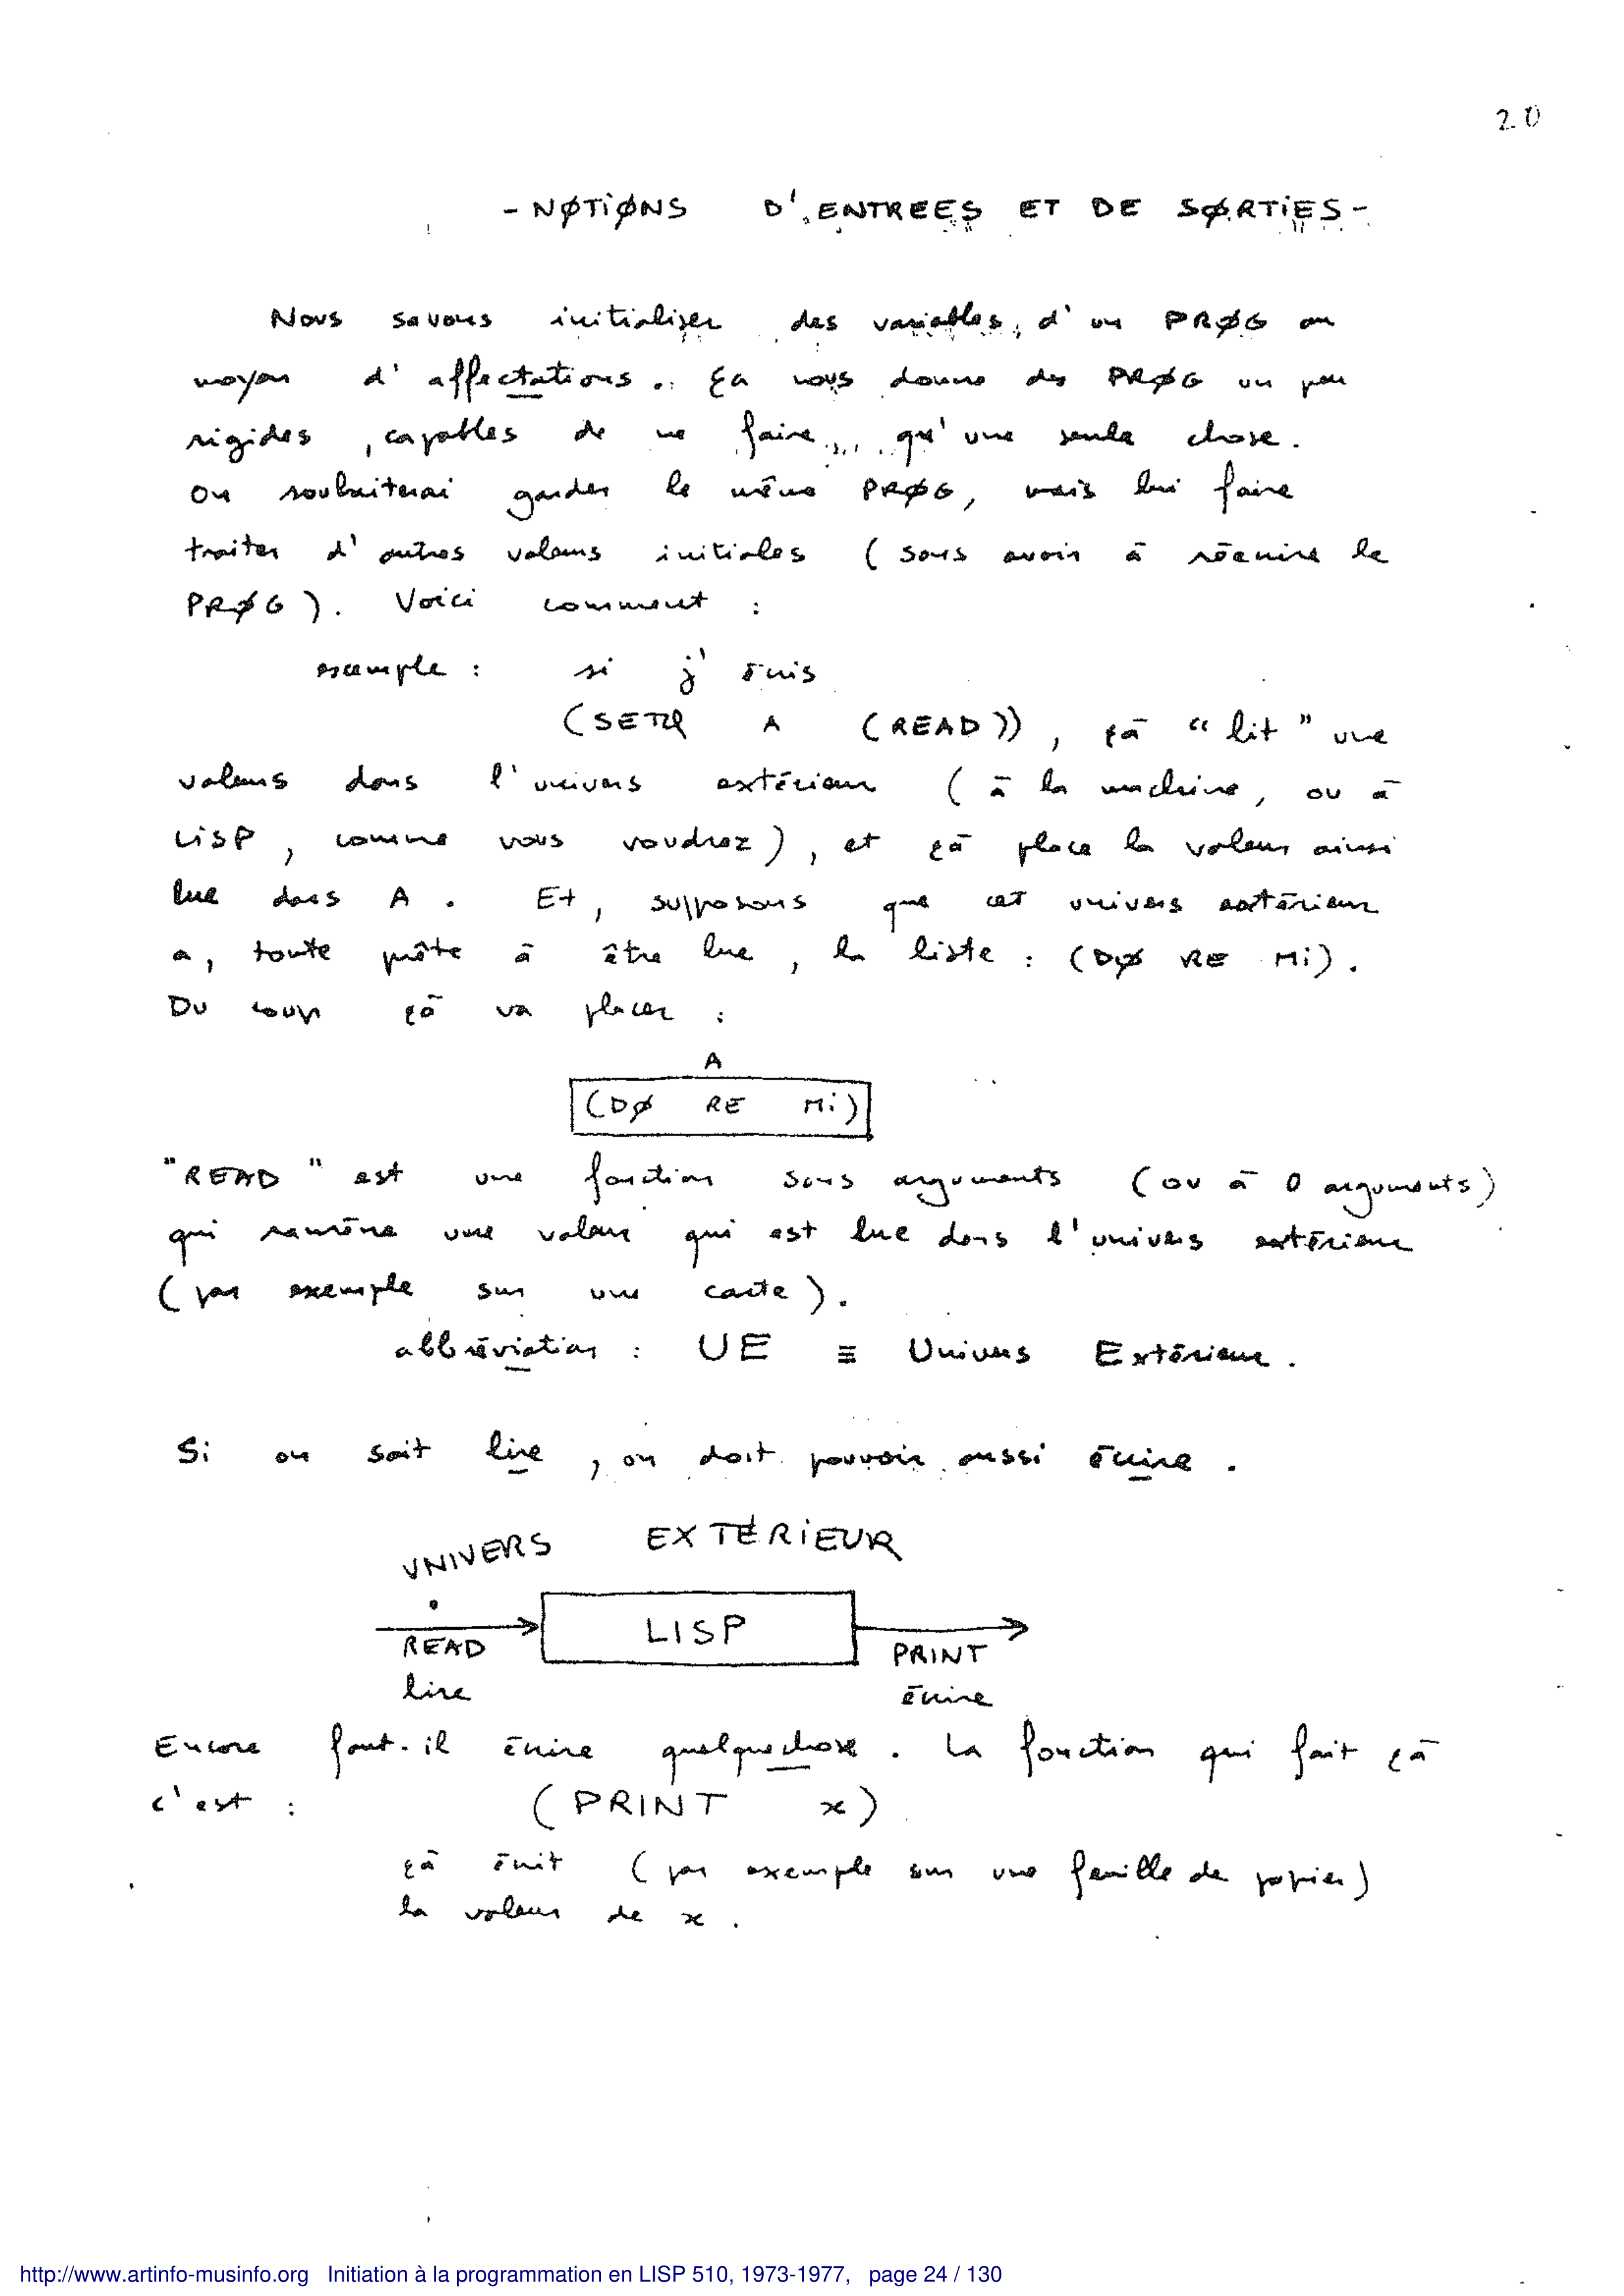 20
- NØTiØNS D'ENTREES ET DE SØRTiES -
Nous savons initialiser des variables d'un PRØG au
moyen d'affectations. Ça nous donne des PRØG un peu
rigides, capables de ne faire qu'une seule chose.
On souhaiterai garder le même PRØG, mais lui faire
traiter d'autres valeurs initiales (sans avoir à réécrire le
PRØG). Voici comment :
exemple : si j'écris
(SETQ A (READ)), çà "lit" une
valeurs dans l'univers extérieur (à la machine, ou à
LiSP, comme vous voudrez), et çà place la valeur ainsi
lue dans A. Et, supposons que cet univers extérieur
a, toute prête à être lue, la liste : (DØ RE Mi).
Du coup çà va placer :
A
(DØ RE Mi)
"READ" est une fonction sans arguments (ou à 0 arguments)
qui ramène une valeur qui est lue dans l'univers extérieur
(par exemple sur une carte).
abbréviation : UE ≡ Univers Extérieur.
Si on sait lire, on doit pouvoir aussi écrire.
UNIVERS EXTÉRiEUR
LISP
READ PRINT
lire écrire
Encore faut-il écrire quelquechose. La fonction qui fait çà
c'est : (PRINT x)
çà écrit (par exemple sur une feuille de papier)
la valeur de x.
http://www.artinfo-musinfo.org Initiation à la programmation en LISP 510, 1973-1977, page 24 / 130